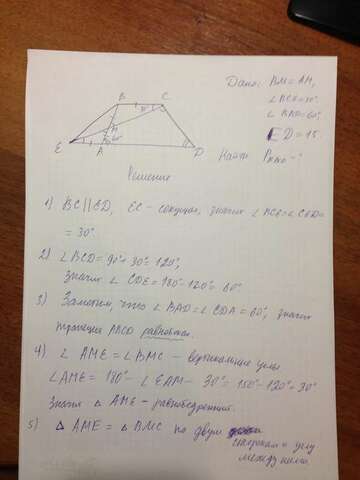 Дано: BM=AM,
∠BCE=30°
∠BAD=60°,
ED=15.
Найти
B
C
M
60°
E
A
D
Решение
1) BC||ED, EC - секущая, значит ∠BCE=∠CED=
= 30°
2) ∠BCD=90°+30°=120°,
значит ∠CDE=180°-120°=60°
3) Заметим, что ∠BAD=∠CDA=60°, значит
трапеция ABCD равнобок.
4) ∠AME=∠BMC - вертикальные углы
∠AME=180°-∠EAM-30°=150°-120°=30°
значит △AME - равнобедренный.
5) △AME=△BMC по двум
сторонам и углу
между ними